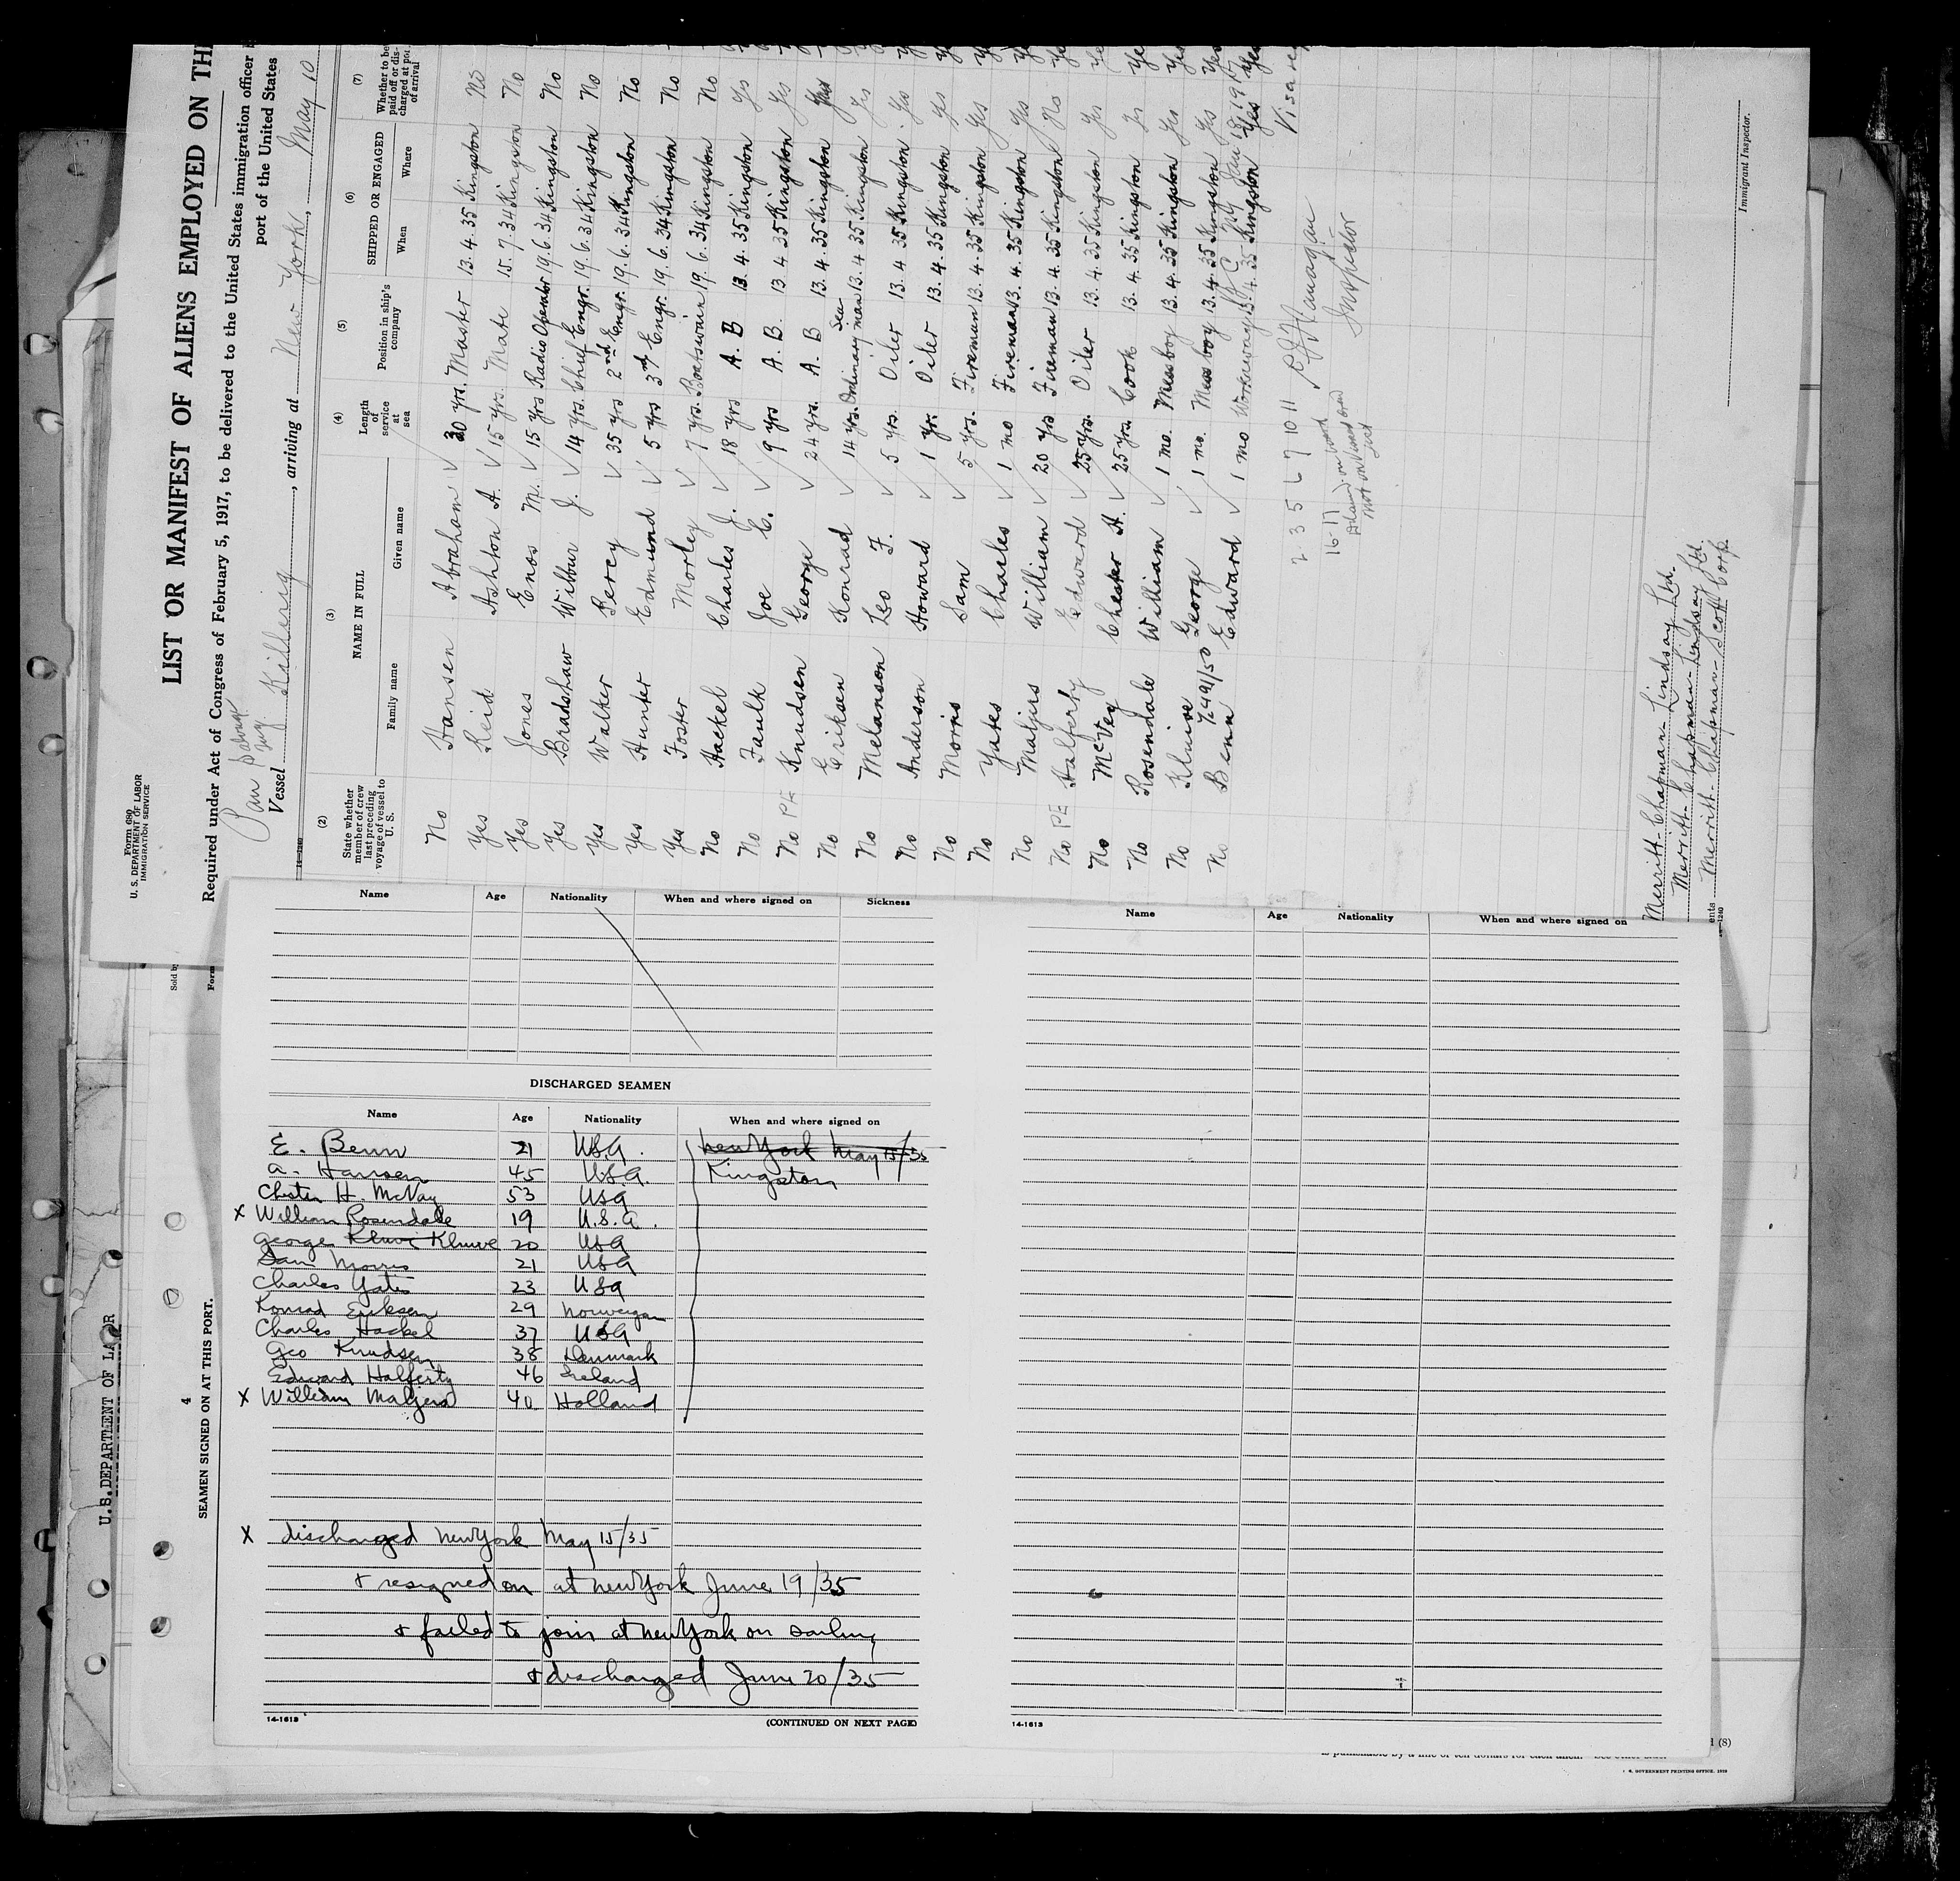 Form 680
U. S. DEPARTMENT OF LABOR
IMMIGRATION SERVICE
LIST OR MANIFEST OF ALIENS EMPLOYED ON TH
Required under Act of Congress of February 5, 1917, to be delivered to the United States immigration officer
port of the United States
Vessel Tug Killerig, arriving at New York, May 10
(2) (3) (4) (5) (6) (7)
State whether member of crew last preceding voyage of vessel to U. S. NAME IN FULL Length of service at sea Position in ship's company SHIPPED OR ENGAGED Whether to be paid off or discharged at port of arrival
Family name Given name When Where
No Hansen Abraham ✓ 30 yrs. Master 13. 4. 35 Kingston No
Yes Reid Ashton A. ✓ 15 yrs. Mate 15. 7. 34 Kingston No
Yes Jones Enos M. ✓ 15 yrs Radio Operator 19. 6. 34 Kingston No
Yes Bradshaw Wilbur J. ✓ 14 yrs. Chief Engr. 19. 6. 34 Kingston No
Yes Walker Percy ✓ 35 yrs 2nd Engr. 19. 6. 34 Kingston No
Yes Hunter Edmund ✓ 5 yrs 3rd Engr. 19. 6. 34 Kingston No
Yes Foster Morley ✓ 7 yrs. Boatswain 19. 6. 34 Kingston No
No Hackel Charles J. ✓ 18 yrs A. B 13. 4. 35 Kingston Yes
No Faulk Joe C. ✓ 9 yrs A. B. 13. 4 35 Kingston Yes
No PE Knudsen George ✓ 24 yrs. A. B 13. 4. 35 Kingston Yes
No Eriksen Konrad ✓ 14 yrs. Ordinary Seaman 13. 4 35 Kingston Yes
No Melanson Leo F. ✓ 5 yrs. Oiler 13. 4 35 Kingston. Yes
No Anderson Howard ✓ 1 yr. Oiler 13. 4. 35 Kingston Yes
No Morris Sam ✓ 5 yrs. Fireman 13. 4. 35 Kingston Yes
No Yates Charles ✓ 1 mo Fireman 13. 4. 35 Kingston Yes
No Matjers William ✓ 20 yrs Fireman 13. 4. 35 Kingston No
No PE Halferty Edward ✓ 25 yrs. Oiler 13. 4. 35 Kingston Yes
No McVey Chester H. ✓ 25 yrs. Cook 13. 4. 35 Kingston Yes
No Rosendale William ✓ 1 mo. Mess boy 13. 4. 35 Kingston Yes
No Kluive George ✓ 1 mo. Mess boy 13. 4. 35 Kingston Yes
No Benn Edward ✓ 1 mo Workaway 13. 4. 35 Kingston Yes
2 3 5 6 7 10 11
16-17
Inspector
Merritt-Chapman-Lindsay Ltd.
Merritt-Chapman-Lindsay Ltd.
Merritt-Chapman-Scott Corp
Immigrant Inspector.
U.S. DEPARTMENT OF LABOR
4
SEAMEN SIGNED ON AT THIS PORT.
Name Age Nationality When and where signed on Sickness
DISCHARGED SEAMEN
Name Age Nationality When and where signed on
E. Benn 21 USA. New York May 15/35
A. Hansen 45 USA. Kingston
Chester H. McVay 53 USA
x William Rosendale 19 U.S.A.
George Kluve 20 USA
Sam Morris 21 USA
Charles Yates 23 USA
Konrad Eriksen 29 Norwegan
Charles Hackel 37 USA
Geo Knudsen 38 Denmark
Edward Halferty 46 Ireland
x William Matjers 40 Holland
x discharged New York May 15/35
+ resigned on at New York June 19/35
+ failed to join at New York on sailing
+ discharged June 20/35
14-1613 (CONTINUED ON NEXT PAGE)
Name Age Nationality When and where signed on
14-1613
U. S. GOVERNMENT PRINTING OFFICE